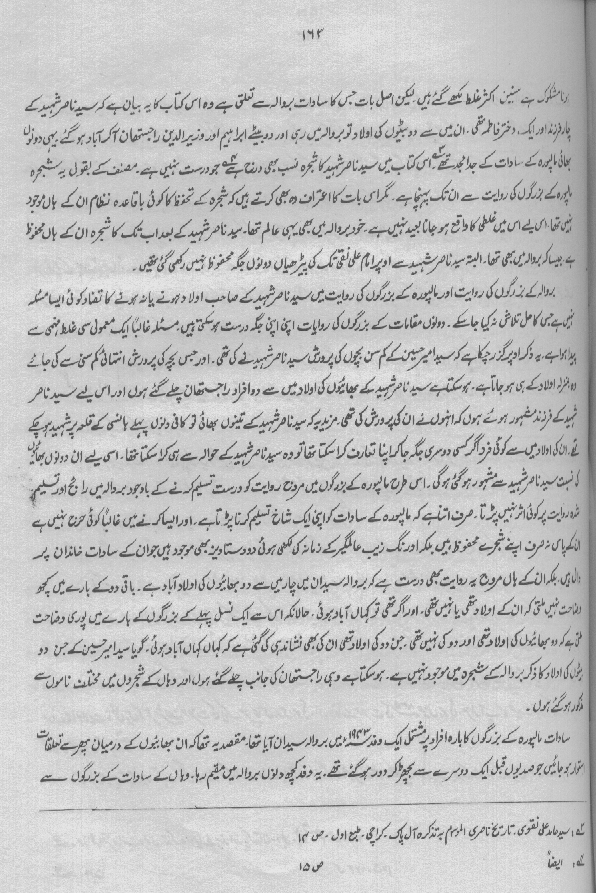 ۱۶۳
ہونا مشکوک ہے سنین اکثر غلط لکھے گئے ہیں۔ لیکن اصل بات جس کا سادات بروالہ سے تعلق ہے وہ اس کتاب کا یہ بیان ہے کہ سید ناصر شہید کے
چار فرزند اور ایک دختر فاطمہ تھی۔ ان میں سے دو بیٹیوں کی اولاد تو بروالہ میں رہی اور دو بیٹے ابراہیم اور وزیر الدین راجستھان آکر آباد ہو گئے یہی دونوں
بھائی مالپورہ کے سادات کے جد امجد تھے۔ اس کتاب میں سید ناصر شہید کا شجرہ نسب بھی درج ہے جو درست نہیں ہے۔ مصنف کے بقول یہ شجرہ
مالپورہ کے بزرگوں کی روایت سے ان تک پہنچا ہے۔ مگر اس بات کا اعتراف وہ بھی کرتے ہیں کہ شجرہ کے تحفظ کا کوئی باقاعدہ نظام ان کے ہاں موجود
نہیں تھا۔ اس لیے اس میں غلطی کا واقع ہو جانا بعید نہیں ہے۔ خود بروالہ میں بھی یہی عالم تھا۔ سید ناصر شہید کے بعد اب تک کا شجرہ ان کے ہاں محفوظ
ہے جیسا کہ بروالہ میں بھی تھا۔ البتہ سید ناصر شہید سے اوپر امام علی نقی تک کی پیڑھیاں دونوں جگہ محفوظ نہیں رکھی گئی تھیں۔
بروالہ کے بزرگوں کی روایت اور مالپورہ کے بزرگوں کی روایت میں سید ناصر شہید کے صاحب اولاد ہونے یا نہ ہونے کا تضاد کوئی ایسا مسئلہ
نہیں ہے جس کا حل تلاش نہ کیا جا سکے۔ دونوں مقامات کے بزرگوں کی روایات اپنی اپنی جگہ درست ہو سکتی ہیں۔ مسئلہ غالباً ایک معمولی سی غلط فہمی سے
پیدا ہوا ہے۔ یہ ذکر اوپر گزر چکا ہے کہ سید امیر حسین کے کم سن بچوں کی پرورش سید ناصر شہید نے کی تھی۔ اور جس بچہ کی پرورش انتہائی کم سنی سے کی جائے
وہ بمنزلہ اولاد کے ہی ہو جاتا ہے۔ ہو سکتا ہے سید ناصر شہید کے بھائیوں کی اولاد میں سے دو افراد راجستھان چلے گئے ہوں اور اس لیے سید ناصر
شہید کے فرزند مشہور ہوئے ہوں کہ انہوں نے ان کی پرورش کی تھی۔ مزید یہ کہ سید ناصر شہید کے تینوں بھائی تو کافی دنوں پہلے ہانسی کے قلعہ پر شہید ہو چکے
تھے۔ ان کی اولاد میں سے کوئی فرد اگر کسی دوسری جگہ جاکر اپنا تعارف کرا سکتا تھا تو وہ سید ناصر شہید کے حوالہ سے ہی کرا سکتا تھا۔ اسی لیے ان دونوں بھائیوں
کی نسبت سید ناصر شہید سے مشہور ہو گئی ہو گی۔ اس طرح مالپورہ کے بزرگوں میں مروج روایت کو درست تسلیم کرنے کے باوجود بروالہ میں رائج اور تسلیم
شدہ روایت پر کوئی اثر نہیں پڑتا۔ صرف اتنا ہے کہ مالپورہ کے سادات کو اپنی ایک شاخ تسلیم کرنا پڑتا ہے۔ اور ایسا کرنے میں غالباً کوئی حرج نہیں ہے
ان کے پاس نہ صرف اپنے شجرے محفوظ ہیں۔ بلکہ اورنگ زیب عالمگیر کے زمانہ کی لکھی ہوئی دو دستاویز بھی موجود ہیں جو ان کے سادات خاندان پر
دال ہیں۔ بلکہ ان کے ہاں مروج یہ روایت بھی درست ہے کہ بروالہ سیدان میں چار میں سے دو بھائیوں کی اولاد آباد ہے۔ باقی دو کے بارے میں کچھ
وضاحت نہیں ملتی کہ ان کے اولاد تھی یا نہیں تھی۔ اور اگر تھی تو کہاں آباد ہوئی۔ حالانکہ اس سے ایک نسل پہلے کے بزرگوں کے بارے میں پوری وضاحت
ملتی ہے کہ دو بھائیوں کی اولاد تھی اور دو کی نہیں تھی۔ جن دو کی اولاد تھی ان کی بھی نشاندہی کی گئی ہے کہ کہاں کہاں آباد ہوئی۔ گویا سید امیر حسین کے جن دو
بیٹوں کی اولاد کا ذکر بروالہ کے شجرہ میں موجود نہیں ہے۔ ہو سکتا ہے وہی راجستھان کی جانب چلے گئے ہوں اور وہاں کے شجروں میں مختلف ناموں سے
مذکور ہو گئے ہوں۔
سادات مالپورہ کے بزرگوں کا بارہ افراد پر مشتمل ایک وفد ۱۹۴۳ء میں بروالہ سیدان آیا تھا۔ مقصد یہ تھا کہ ان بھائیوں کے درمیان پھر سے تعلقات
استوار ہو جائیں جو صدیوں قبل ایک دوسرے سے بچھڑ کر دور ہو گئے تھے۔ یہ وفد کچھ دنوں بروالہ میں مقیم رہا۔ وہاں کے سادات کے بزرگوں سے
سید حامد علی نقوی۔ تاریخ ناصری الموسوم بہ تذکرہ آل پاک۔ کراچی۔ طبع اول۔ ص ۱۴
ایضاً ص ۱۵